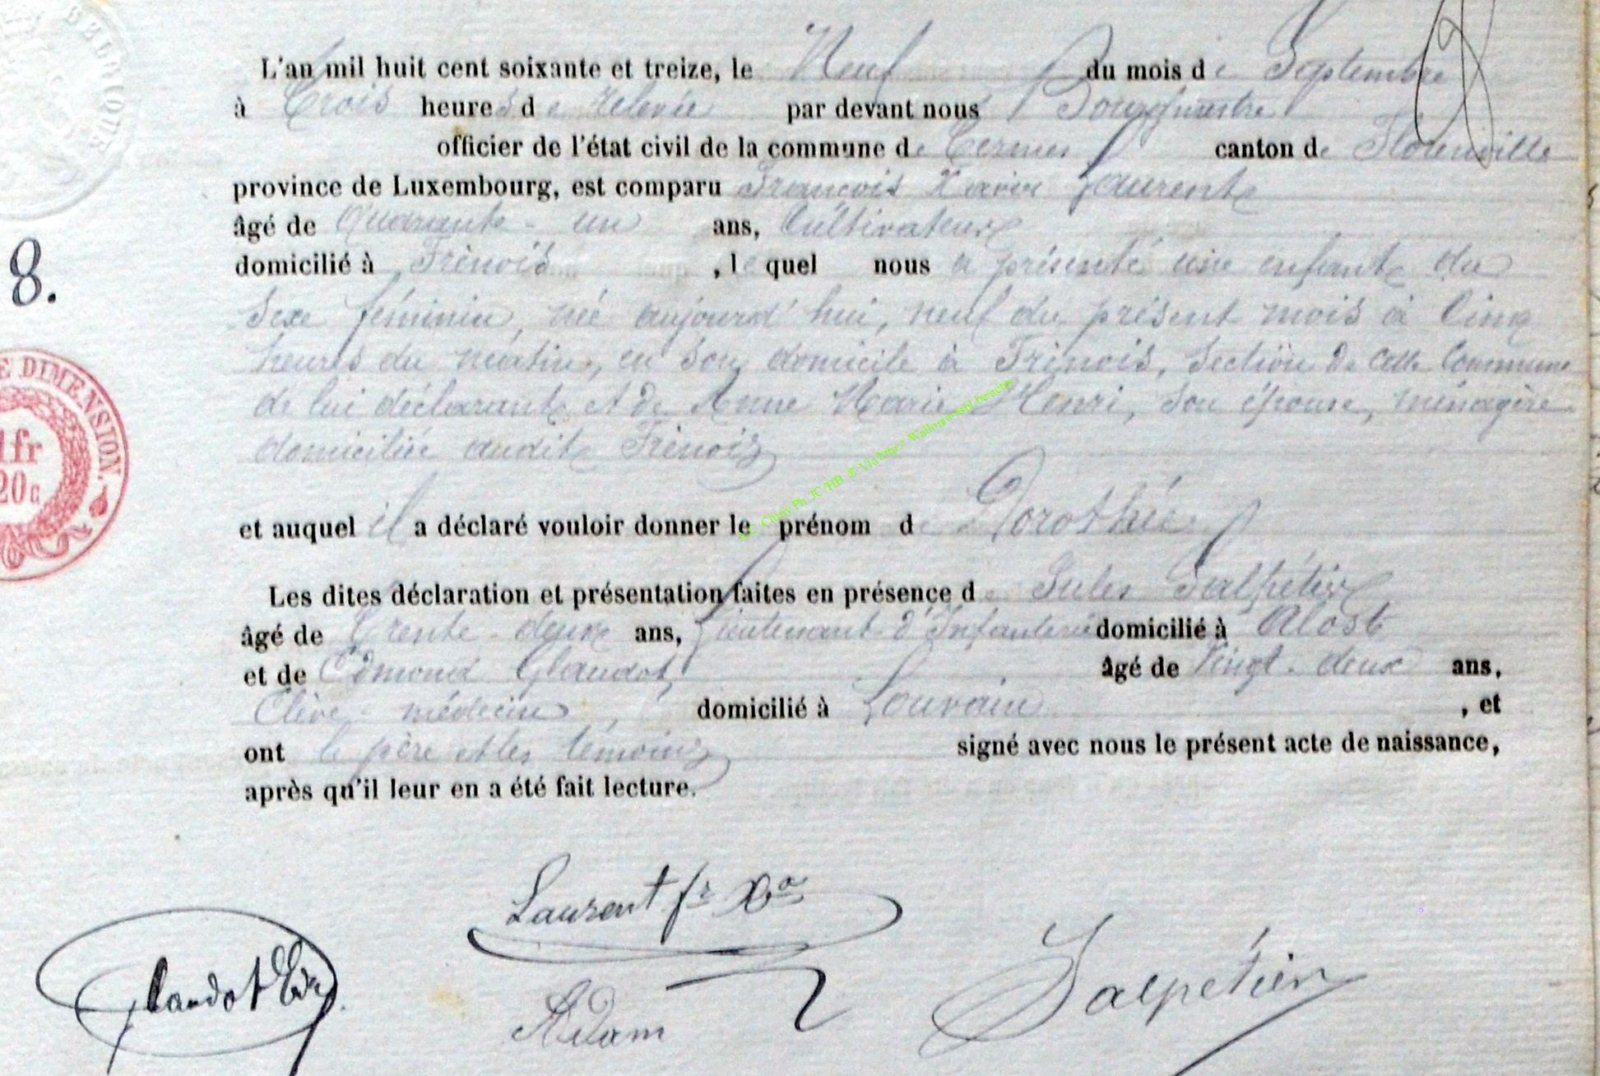 L'an mil huit cent soixante et treize, le Neuf du mois de Septembre
à Trois heures de relevée par devant nous Bourgmestre
officier de l'état civil de la commune de Termes canton de Florenville
province de Luxembourg, est comparu François Xavier Laurent
âgé de Quarante-un ans, Cultivateur
domicilié à Frênois, lequel nous a présenté une enfant du
8.
Sexe féminin, née aujourd'hui, neuf du présent mois à Cinq
heures du matin, en son domicile à Frênois, Section de cette Commune
E DIMENSION.
de lui déclarant et de Anne Marie Henri, son épouse, ménagère
domiciliée audit Frênois
1fr
20c
et auquel il a déclaré vouloir donner le prénom de Dorothée
Les dites déclaration et présentation faites en présence de Jules Salpétier
âgé de Trente-deux ans, Lieutenant d'Infanterie domicilié à Alost
et de Edmond Glaudot, âgé de Vingt-deux ans,
Elève-médecin, domicilié à Louvain, et
ont le père et les témoins signé avec nous le présent acte de naissance,
après qu'il leur en a été fait lecture.
Laurent fr Xer
Glaudot Ed.
Adam
Salpétier